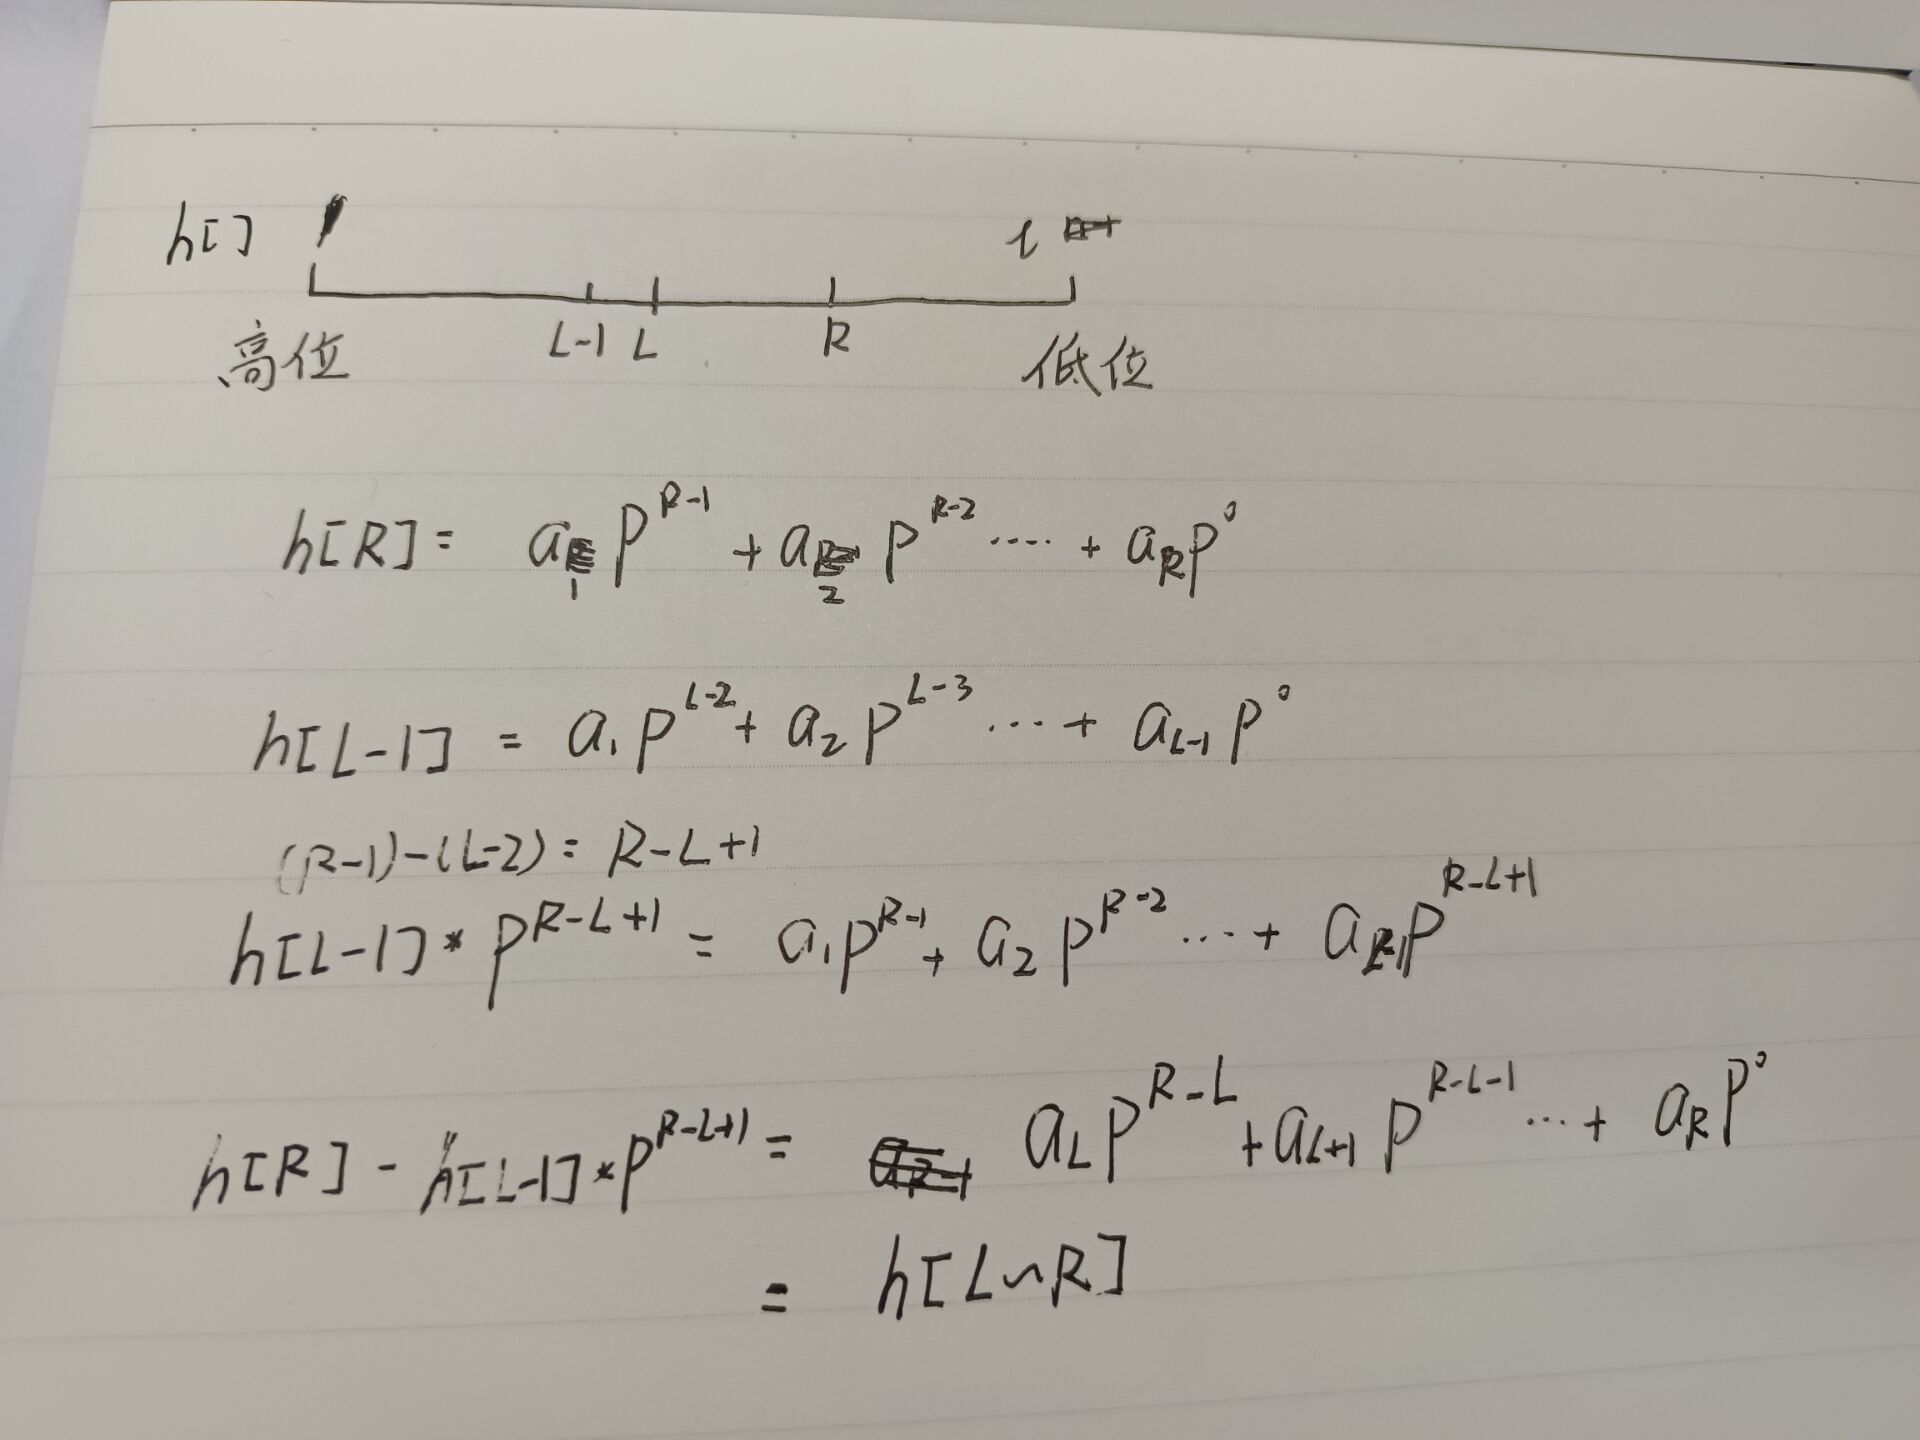 h[] 1
L-1 L R
高位 低位
h[R] = a₁p^{R-1} + a₂p^{R-2} ···· + a_R p⁰
h[L-1] = a₁p^{L-2} + a₂p^{L-3} ··· + a_{L-1}p⁰
(R-1)-(L-2) = R-L+1
h[L-1]*p^{R-L+1} = a₁p^{R-1} + a₂p^{R-2} ··· + a_{L-1}p^{R-L+1}
h[R] - h[L-1]*p^{R-L+1} = a_L p^{R-L} + a_{L+1}p^{R-L-1} ··· + a_R p⁰
= h[L~R]